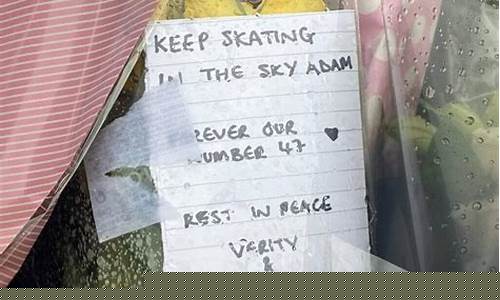 KEEP SKATING
IN THE SKY ADAM
REVER OUR
NUMBER 47
REST IN PEACE
VERITY
&